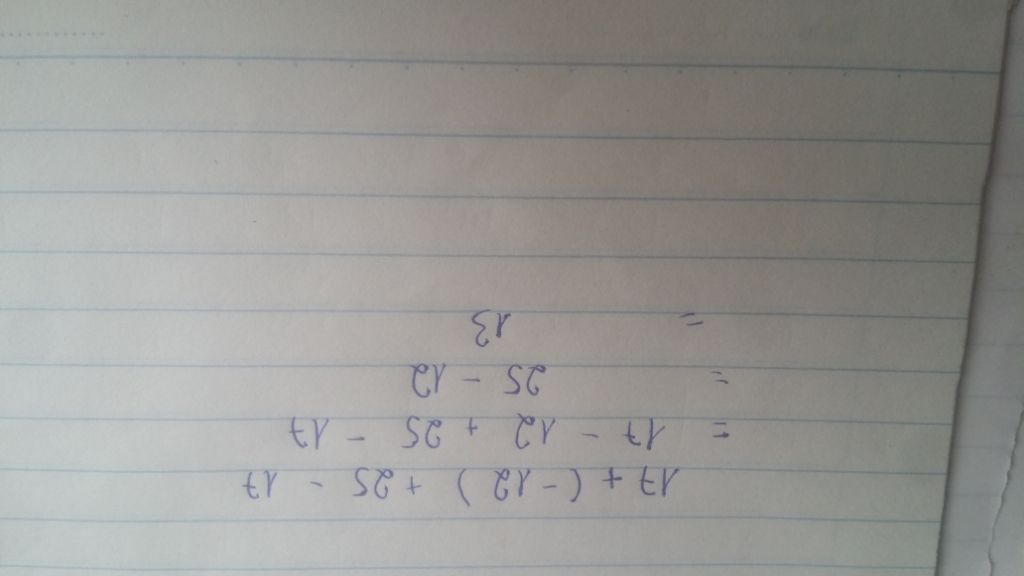 17 + ( - 12 ) + 25 - 17
= 17 - 12 + 25 - 17
= 25 - 12
= 13